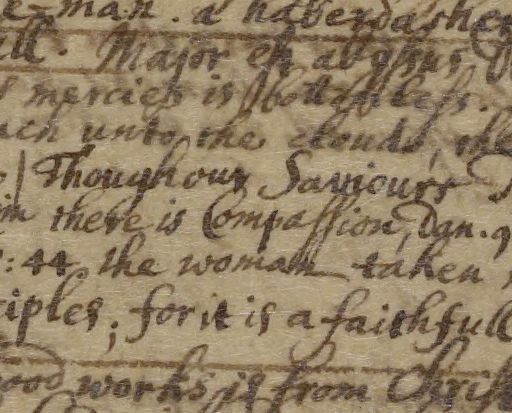 e-man. a haberdasher
all. Major est abyssus
mercies is bottomless.
unto the clouds, the
Though our Saviours
him there is Compassion, Dan. 9
: 44 the woman taken
ciples, for it is a faithfull
good works is from Christ